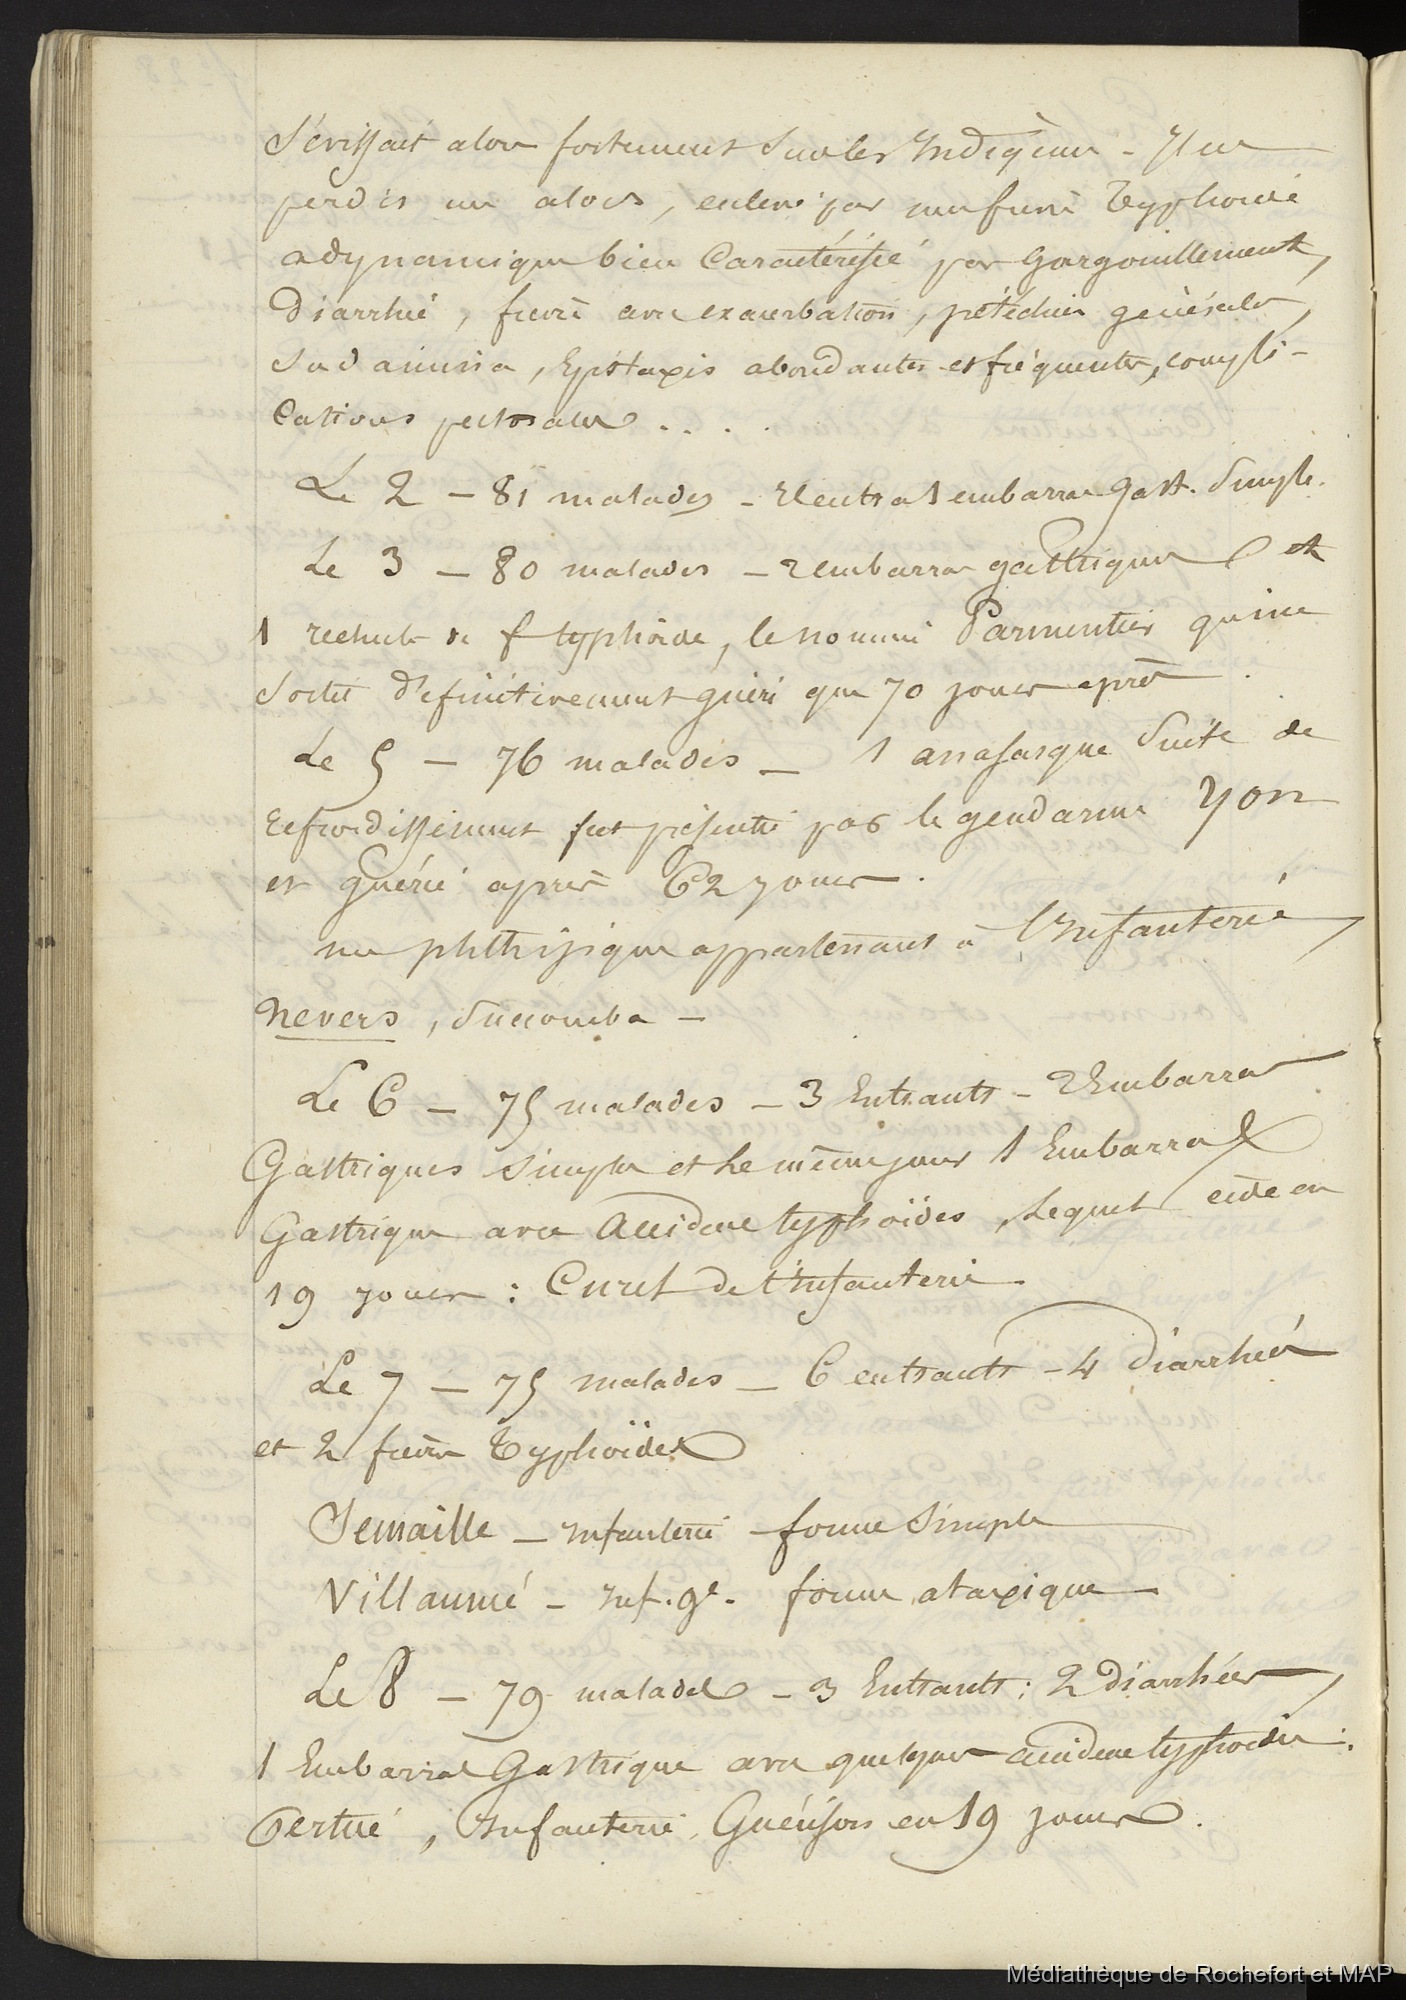 Sévissait alors fortement sur les Indigènes - J'en
perdis un alors, enlevé par une fièvre Typhoïde
adynamique bien Caractérisée par Gargouillement,
Diarrhée, fièvre avec exacerbation, pétéchies générales,
Sudamina, Epistaxis abondantes et fréquentes, compli-
cations pectorales . . . .
Le 2 - 81 malades - Il entra 1 embarras gast. Simple.
Le 3 - 80 malades - 2 embarras gastriques et
1 rechute de f typhoïde, le nommé Parmentier qui ne
Sortit définitivement guéri que 70 jours après.
Le 5 - 76 malades - 1 anasarque Suite de
refroidissement fut présenté par le gendarme Yon
et guérie après 62 jours.
un phthisique appartenant à l'Infanterie,
Nevers, Succomba -
Le 6 - 75 malades - 3 Entrants - 2 Embarras
Gastriques simples et le même jour 1 Embarras
Gastrique avec accidents typhoïdes, lequel cède en
19 jours : Curet de l'Infanterie.
Le 7 - 75 malades - 6 entrants - 4 Diarrhées
et 2 fièvres Typhoïdes
Semaille - Infanterie - forme Simple
Villaumé - Inf. gᵉ. forme ataxique
Le 8 - 79 malades - 3 Entrants : 2 diarrhées,
1 Embarras Gastrique avec quelques accidents typhoïdes :
Pertué, Infanterie, Guérison en 19 jours.
Médiathèque de Rochefort et MAP